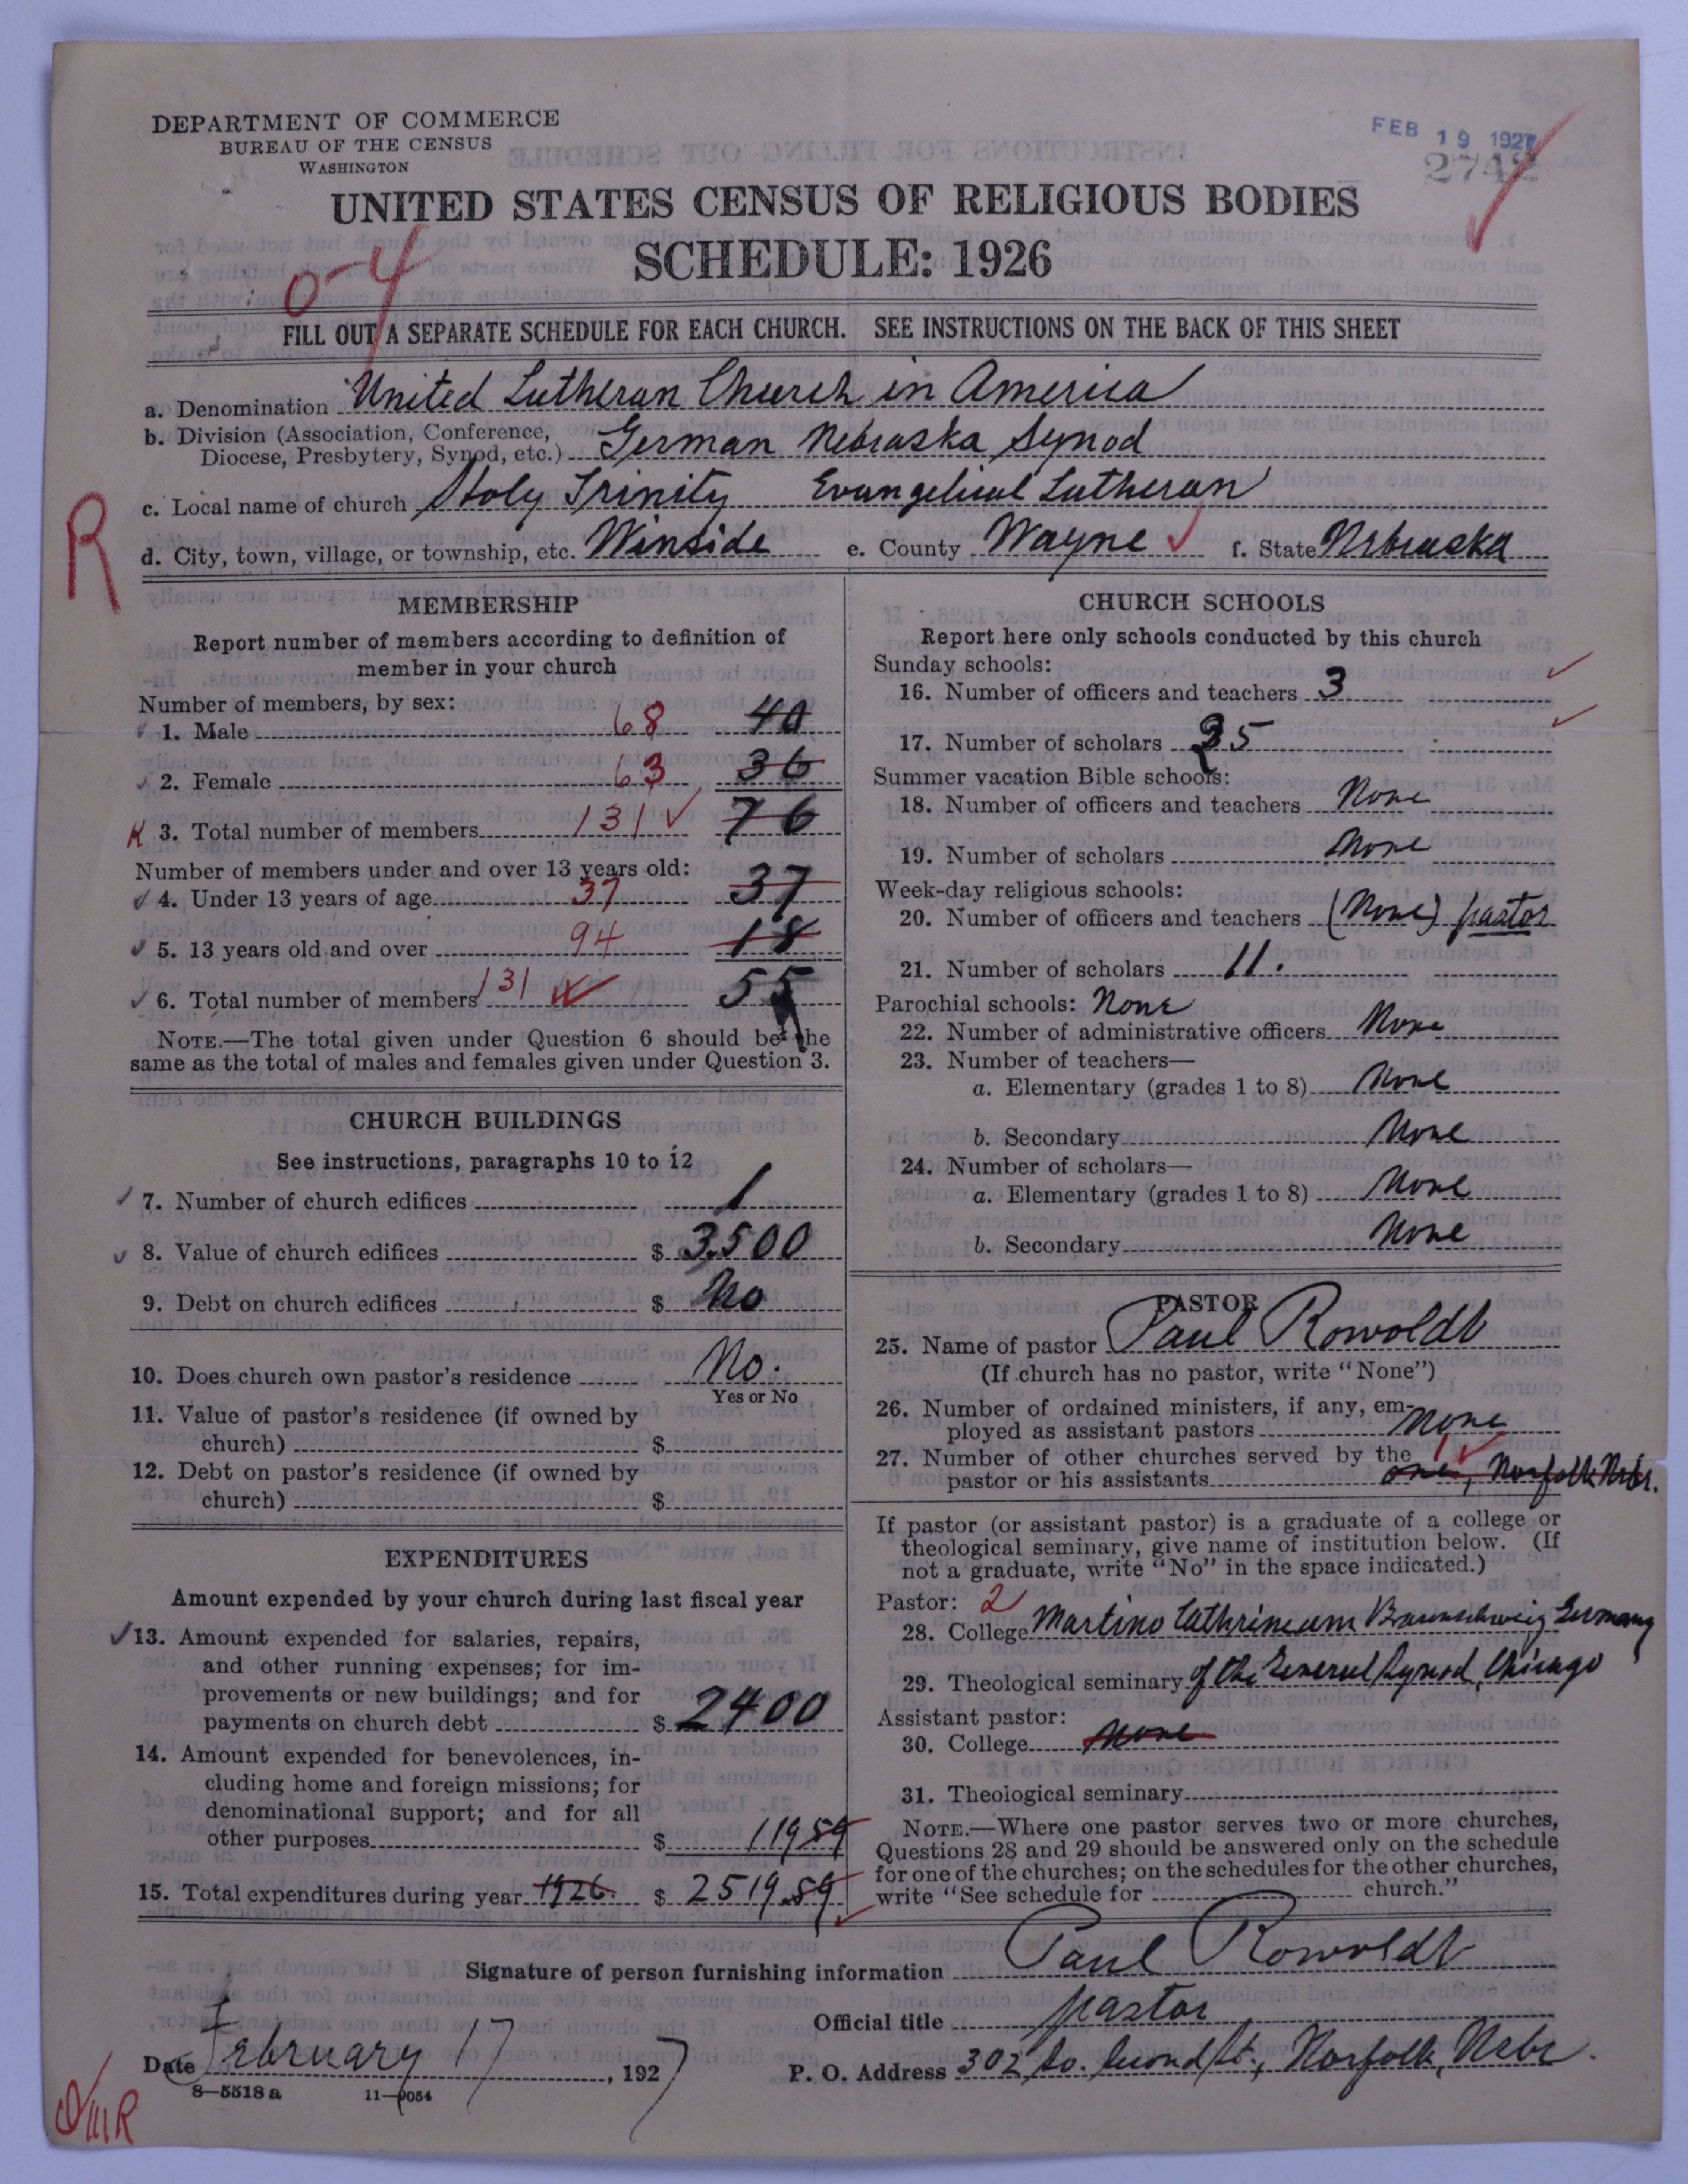 DEPARTMENT OF COMMERCE
BUREAU OF THE CENSUS
WASHINGTON
FEB 19 1927
2742
UNITED STATES CENSUS OF RELIGIOUS BODIES
SCHEDULE: 1926
0-4
FILL OUT A SEPARATE SCHEDULE FOR EACH CHURCH. SEE INSTRUCTIONS ON THE BACK OF THIS SHEET
a. Denomination United Lutheran Church in America
b. Division (Association, Conference, Diocese, Presbytery, Synod, etc.) German Nebraska Synod
R
c. Local name of church Holy Trinity Evangelical Lutheran
d. City, town, village, or township, etc. Winside e. County Wayne ✓ f. State Nebraska
MEMBERSHIP
Report number of members according to definition of
member in your church
Number of members, by sex:
✓ 1. Male 68 40
✓ 2. Female 63 36
R 3. Total number of members 131 ✓ 76
Number of members under and over 13 years old:
✓ 4. Under 13 years of age 37 37
✓ 5. 13 years old and over 94 18
✓ 6. Total number of members 131 55
NOTE.—The total given under Question 6 should be the
same as the total of males and females given under Question 3.
CHURCH BUILDINGS
See instructions, paragraphs 10 to 12
✓ 7. Number of church edifices 1
✓ 8. Value of church edifices $ 3,500
9. Debt on church edifices $ No
10. Does church own pastor's residence No.
Yes or No
11. Value of pastor's residence (if owned by
church) $
12. Debt on pastor's residence (if owned by
church) $
EXPENDITURES
Amount expended by your church during last fiscal year
✓ 13. Amount expended for salaries, repairs,
and other running expenses; for im-
provements or new buildings; and for
payments on church debt $ 2400
14. Amount expended for benevolences, in-
cluding home and foreign missions; for
denominational support; and for all
other purposes $ 119 59
15. Total expenditures during year 1926. $ 2519.59
CHURCH SCHOOLS
Report here only schools conducted by this church
Sunday schools:
16. Number of officers and teachers 3 ✓
17. Number of scholars 35 ✓
Summer vacation Bible schools:
18. Number of officers and teachers None
19. Number of scholars None
Week-day religious schools:
20. Number of officers and teachers (None) pastor
21. Number of scholars 11.
Parochial schools: None
22. Number of administrative officers None
23. Number of teachers—
a. Elementary (grades 1 to 8) None
b. Secondary None
24. Number of scholars—
a. Elementary (grades 1 to 8) None
b. Secondary None
PASTOR
25. Name of pastor Paul Rowoldt
(If church has no pastor, write "None")
26. Number of ordained ministers, if any, em-
ployed as assistant pastors None
27. Number of other churches served by the 1 ✓
pastor or his assistants one, Norfolk Nebr.
If pastor (or assistant pastor) is a graduate of a college or
theological seminary, give name of institution below. (If
not a graduate, write "No" in the space indicated.)
Pastor: 2
28. College Martino Cathrineum Braunschweig Germany
29. Theological seminary of the General Synod, Chicago
Assistant pastor:
30. College None
31. Theological seminary
NOTE.—Where one pastor serves two or more churches,
Questions 28 and 29 should be answered only on the schedule
for one of the churches; on the schedules for the other churches,
write "See schedule for church."
Signature of person furnishing information Paul Rowoldt
Official title pastor
Date February 17, 1927 P. O. Address 302 So. Second St., Norfolk, Nebr.
8—5518 a 11—9054